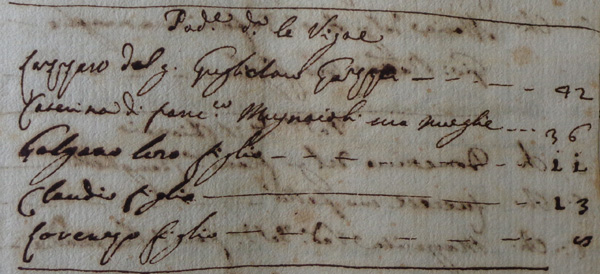 Pod.e d.o le Vigne
Gasparo del q. Guglielmo 42
Caterina di Fran.co Magnaioli sua moglie 36
Galgano loro figlio
Claudio figlio 13
Lorenzo figlio